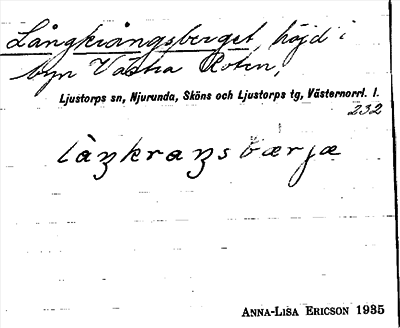 Långkrångsberget, höjd i
byn Västra Roten,
Ljustorps sn, Njurunda, Sköns och Ljustorps tg, Västernorrl. l.
232
làŋkraŋsbærjæ
ANNA-LISA ERICSON 1935